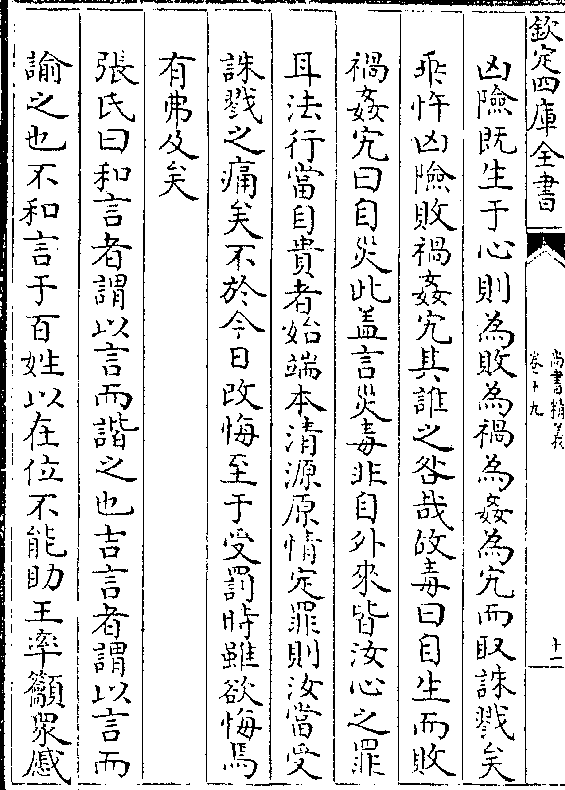 欽定四庫全書
尚書精義
卷十九
十二
凶險既生于心則為敗為禍為姦為宄而取誅戮矣
乖忤凶險敗禍姦宄其誰之咎哉故毒曰自生而敗
禍姦宄曰自災此盖言災毒非自外來皆汝心之罪
耳法行當自貴者始端本清源原情定罪則汝當受
誅戮之痛矣不於今日改悔至于受罰時雖欲悔焉
有弗及矣
張氏曰和言者謂以言而諧之也吉言者謂以言而
諭之也不和言于百姓以在位不能助王率籲衆慼